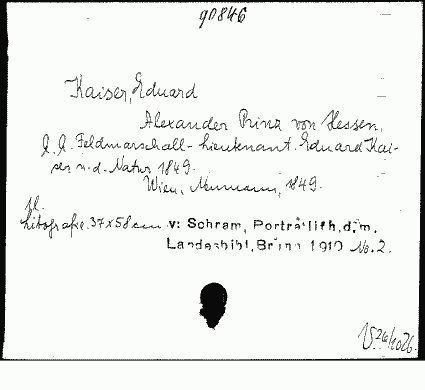 90846
Kaiser, Eduard
Alexander Prinz von Hessen,
k. k. Feldmarschall-Lieutenant. Eduard Kai-
ser n. d. Natur 1849.
Wien, Neumann, 1849.
1 l.
Litografie. 37x58 cm v: Schram, Porträtlith. d. m.
Landesbibl. Brünn 1910 No. 2.